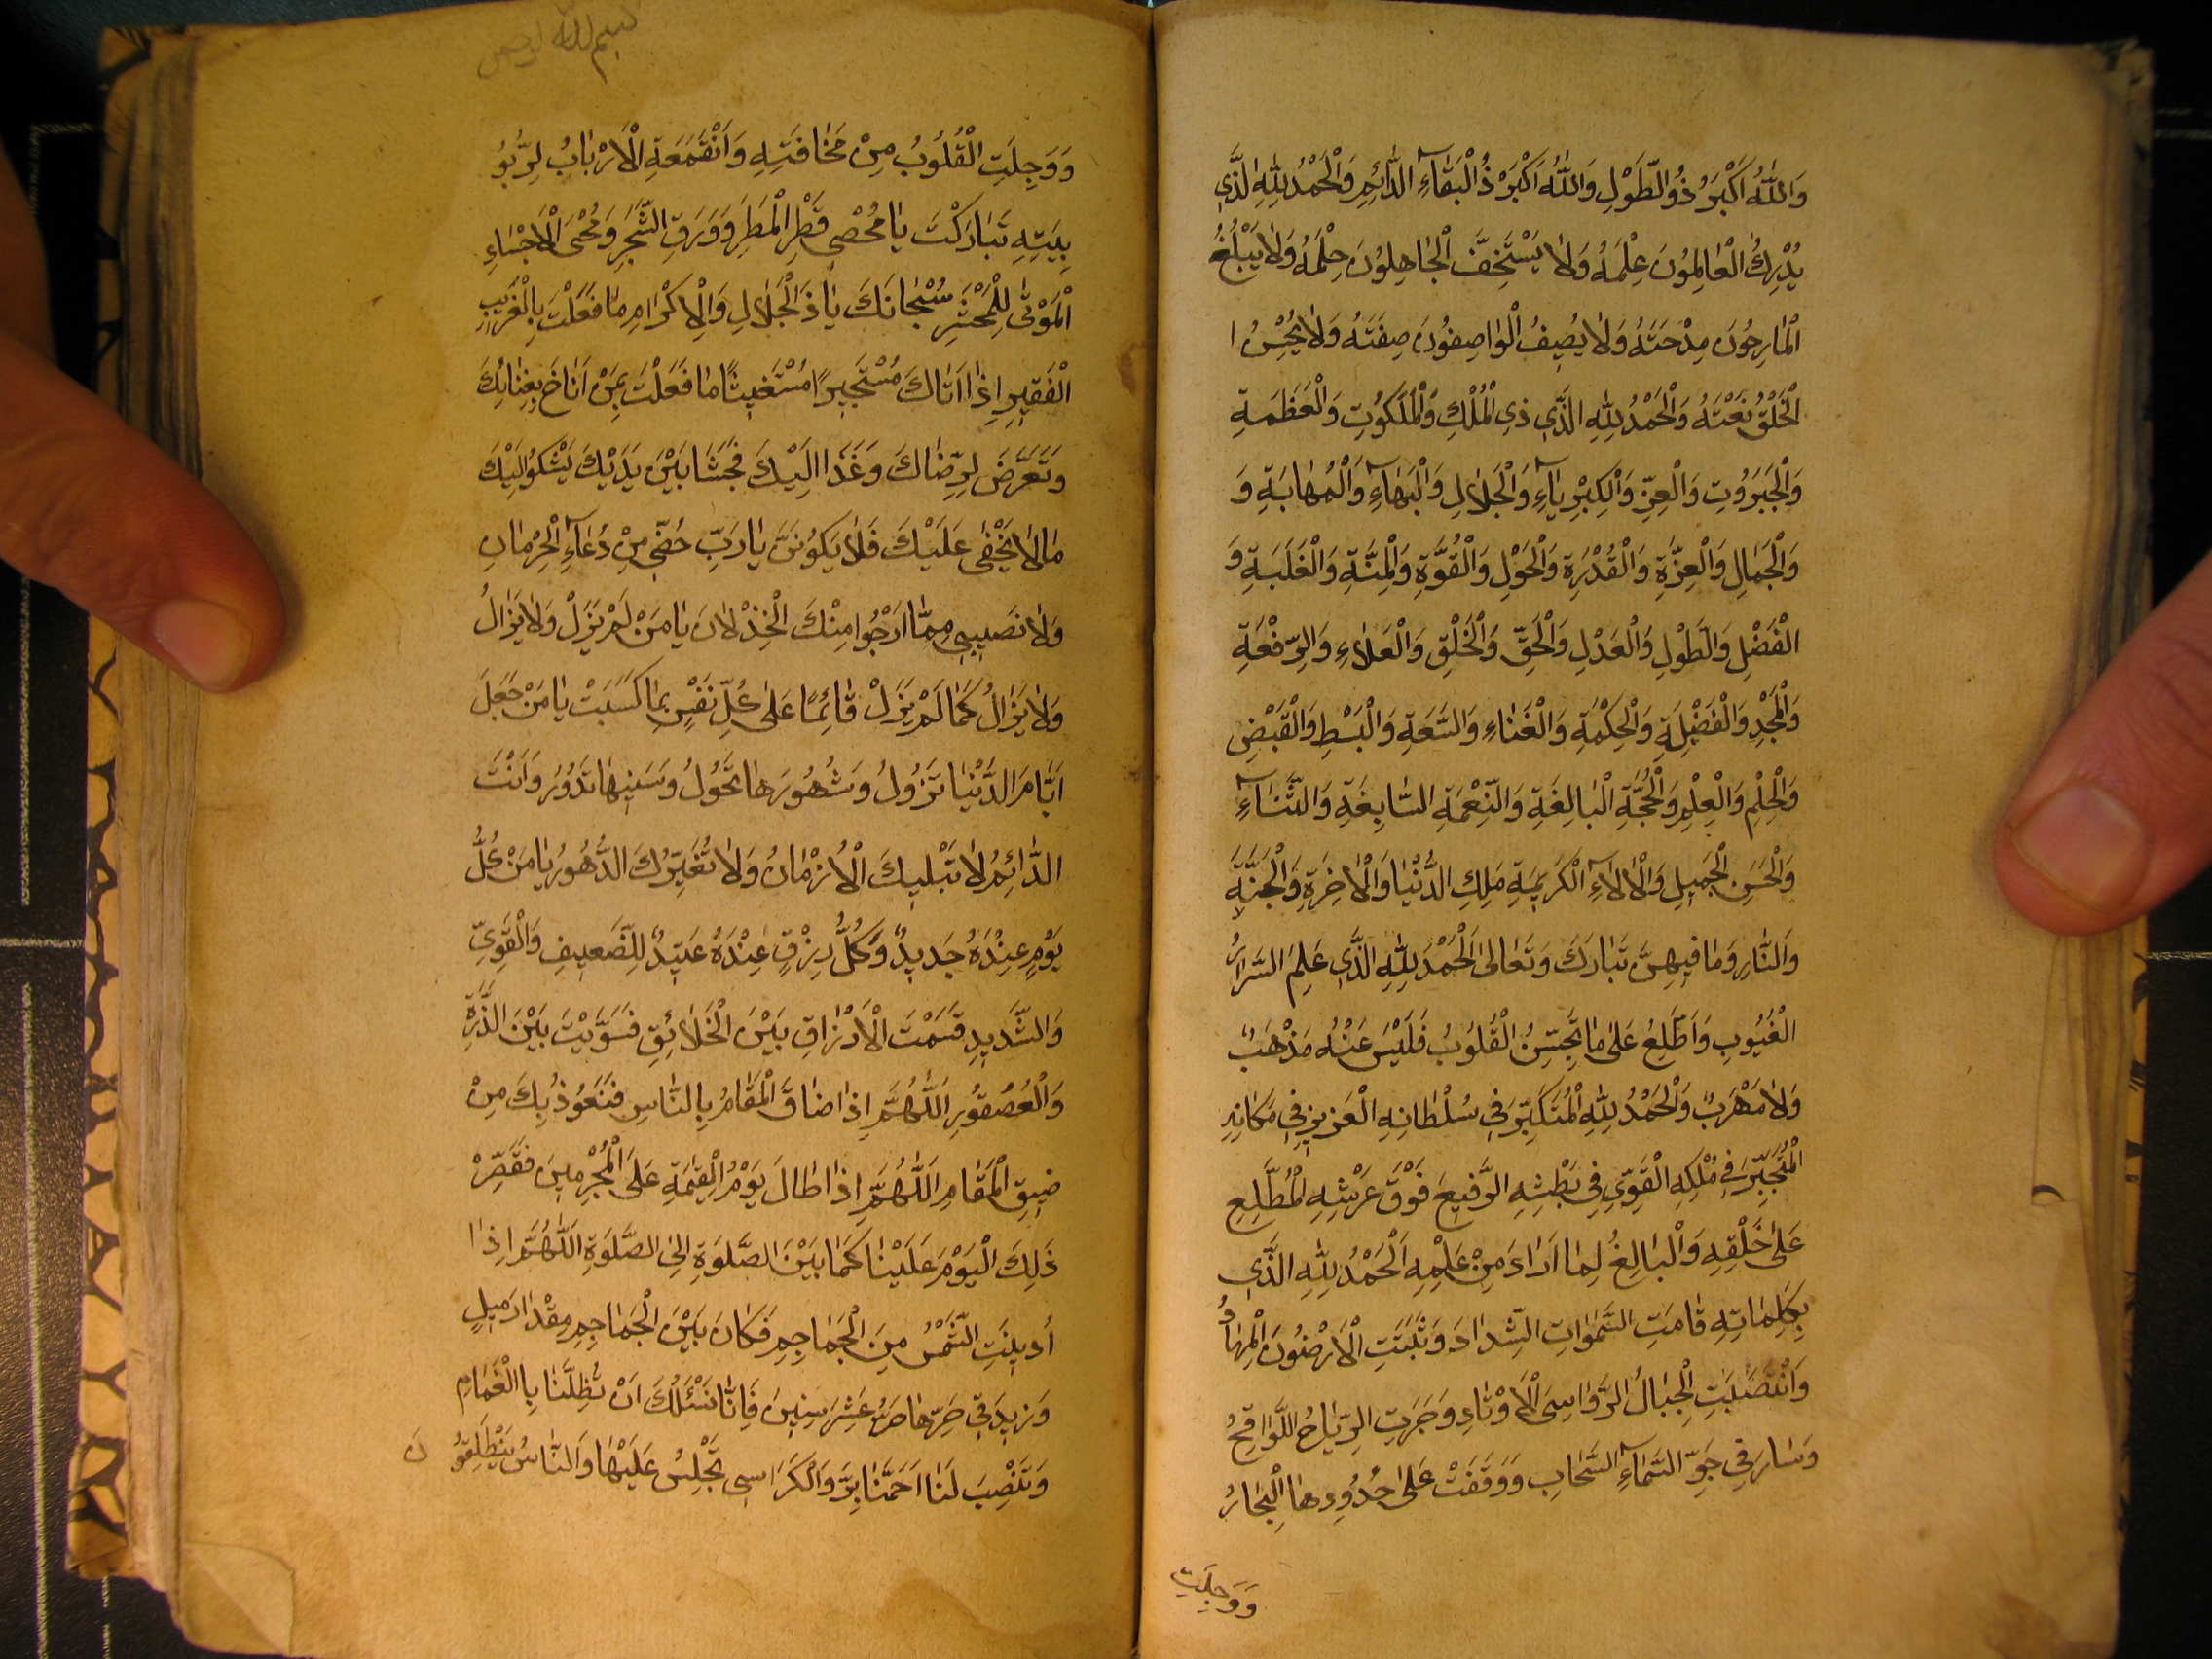 وَاللّٰهُ اَكْبَرُ ذُو الطَّوْلِ وَاللّٰهُ اَكْبَرْ ذُ الْبَقٰاۤءِ الدّٰائِمِ وَالْحَمْدُ لِلّٰهِ الَّذٖي
يُدْرِكُ الْعٰالِمُونَ عِلْمَهُ وَلاٰ يَسْتَخِفَّ الْجٰاهِلُونَ حِلْمَهُ وَلاٰ يَبْلُغُ
الْمٰادِحُونَ مِدْحَتَهُ وَلاٰ يُصِيفُ الْوٰاصِفُونَ صِفَتَهُ وَلاٰ يُحْسِنُ ا
الْخَلْقُ نَعْتَهُ وَالْحَمْدُ لِلّٰهِ الَّذٖي ذِي الْمُلْكِ وَالْمَلَكُوتِ وَالْعَظَمَةِ
وَالْجَبَرُوتِ وَالْعِزِّ وَالْكِبْرِيٰاۤءِ وَالْجَلاٰلِ وَالْبَهٰاۤءِ وَالْمُهٰابَةِ وَ
وَالْجَمٰالِ وَالْعِزَّةِ وَالْقُدْرَةِ وَالْحَوْلِ وَالْقُوَّةِ وَالْمِنَّةِ وَالْغَلَبَةِ وَ
الْفَضْلِ وَالطَّوْلِ وَالْعَدْلِ وَالْحَقِّ وَالْخَلْقِ وَالْعَلاٰءِ وَالرِّفْعَةِ
وَالْمَجْدِ وَالْفَضٖيلَةِ وَالْحِكْمَةِ وَالْغَنٰاءِ وَالسَّعَةِ وَالْبَسْطِ وَالْقَبْضِ
وَالْحِلْمِ وَالْعِلْمِ وَالْحُجَّةِ الْبٰالِغَةِ وَالنِّعْمَةِ السّٰابِغَةِ وَالثَّنٰاۤءِ
وَالْحَسَنِ الْجَمٖيلِ وَالْاٰلاٰۤءِ الْكَرٖيمَةِ مَلِكِ الدُّنْيٰا وَالْاٰخِرَةِ وَالْجَنَّةِ
وَالنّٰارِ وَمٰا فٖيهِنَّ تَبٰارَكَ وَتَعٰالىٰ اَلْحَمْدُ لِلّٰهِ الَّذٖي عَلِمَ السَّرٰائِرُ
الْغُيُوبِ وَاَطَّلِعُ عَلىٰ مٰا تُجِنُّ الْقُلُوبُ فَلَيْسَ عَنْهُ مَذْهَبٌ
وَلاٰ مَهْرَبٌ وَالْحَمْدُ لِلّٰهِ الْمُتَكَبِّرَ فٖي سُلْطٰانِهِ الْعَزٖيزِ فٖي مَكٰانِهِ
الْمُتَجَبِّرَ فٖي مُلْكِهِ الْقَوِيِّ فٖي بَطْشِهِ الرَّفٖيعَ فَوْقَ عَرْشِهِ الْمُطَّلِعِ
عَلىٰ خَلْقِهِ وَالْبٰالِغُ لِمٰا اَرٰادَ مِنْ عِلْمِهِ اَلْحَمْدُ لِلّٰهِ الَّذٖي
بِكَلِمٰاتِهِ قٰامَتِ السَّمٰوٰاتِ الشِّدٰادَ وَثَبَتَتِ الْاَرْضُونَ الْمِهٰادُ
وَانْتَصَبَتِ الْجِبٰالُ الرَّوٰاسِيَ الْاَوْتٰادِ وَجَرَتِ الرِّيٰاحُ اللَّوٰاقِحُ
وَسٰارَ فٖي جَوِّ السَّمٰاۤءِ السَّحٰابِ وَوَقَفَتْ عَلىٰ حُدُودِهٰا الْبِحٰارُ
وَوَجِلَتِ
بسم الله
وَوَجِلَتِ الْقُلُوبُ مِنْ مَخٰافَتِهِ وَاَنْقَمَعَةِ الْاَرْبٰابُ لِرُّبُو
بِيَتِهِ تَبٰارَكْتَ يٰا مُحْصٖي قَطْرِ الْمَطَرِ وَوَرَقِ الشَّجَرِ وَمُحْيِ الْاَجْسٰاءِ
الْمَوْتىٰ لِلْمَحْشَرِ سُبْحٰانَكَ يٰا ذَ الْجَلاٰلِ وَالْاِكْرٰامِ مٰا فَعَلْتَ بِالْغَرٖيبِ
الْفَقٖيرِ اِذٰا اَتٰاكَ مُسْتَجٖيرًا مُسْتَغٖيثًا مٰا فَعَلْتَ بِمَنْ اَنٰاخَ بِفِنٰائِكَ
وَتَعَرَّضَ لِرِّضٰاكَ وَغَدَا اِلَيْكَ فَجَثَا بَيْنَ يَدَيْكَ يَشْكُوا اِلَيْكَ
مٰا لاٰ يَخْفىٰ عَلَيْكَ فَلاٰ يَكُونَنَّ يٰا رَبِّ حَظّٖي مِنْ دُعٰاۤءِ الْحِرْمٰانِ
وَلاٰ نَصٖيبٖي مِمّٰا اَرْجُوا مِنْكَ الْخِذْلاٰنَ يٰا مَنْ لَمْ يَزَلْ وَلاٰ يَزٰالُ
وَلاٰ يَزٰالُ كَمٰا لَمْ يَزَلْ قٰائِمًا عَلىٰ كُلِّ نَفْسٍ بِمٰا كَسَبَتْ يٰا مَنْ جَعَلَ
اَيّٰامَ الدُّنْيٰا تَزُولُ وَشُهُورَهٰا تَحُولُ وَسِنٖيهٰا تَدُورُ وَاَنْتَ
الدّٰائِمُ لاٰ تُبْلٖيكَ الْاَزْمٰانُ وَلاٰ تُغَيِّرُكَ الدُّهُورُ يٰا مَنْ كُلُّ
يَوْمٍ عِنْدَهُ جَدٖيدٌ وَكُلُّ رِزْقٍ عِنْدَهُ عَتٖيدٌ لِلضَّعٖيفِ وَالْقَوِيِّ
وَالشَّدٖيدِ قَسَمْتَ الْاَرْزٰاقِ بَيْنَ الْخَلاٰئِقِ فَسَوَّيْتَ بَيْنَ الذَّرَّةِ
وَالْعُصْفُورِ اَللّٰهُمَّ اِذٰا ضٰاقَ الْمَقٰامُ بِالنّٰاسِ فَنَعُوذُ بِكَ مِنْ
ضٖيقِ الْمَقٰامِ اَللّٰهُمَّ اِذٰا طٰالَ يَوْمُ الْقِيٰمَةِ عَلَى الْمُجْرِمٖينَ فَقَصِّرْ
ذَلِكَ الْيَوْمَ عَلَيْنٰا كَمٰا بَيْنَ الصَّلوٰةِ اِلىٰ الصَّلوٰةِ اَللّٰهُمَّ اِذٰا
اُدْنِيَتِ الشَّمْسُ مِنَ الْجَمٰاجِمِ فَكٰانَ بَيْنَ الْجَمٰاجِمِ مِقْدٰارَ مٖيلٍ
وَزٖيدَ فٖي حَرِّهٰا حَرُّ عَشَرَ سِنٖينَ فَاِنّٰا نَسْئَلُكَ اَنْ تُظِلَّنٰا بِاالْغَمٰامِ
وَتَنْصِبَ لَنٰا اَحَمَّنٰابِرَ وَالْكَرٰاسِي نَجْلِسُ عَلَيْهٰا وَالنّٰاسُ يَنْطَلِقُو نَ